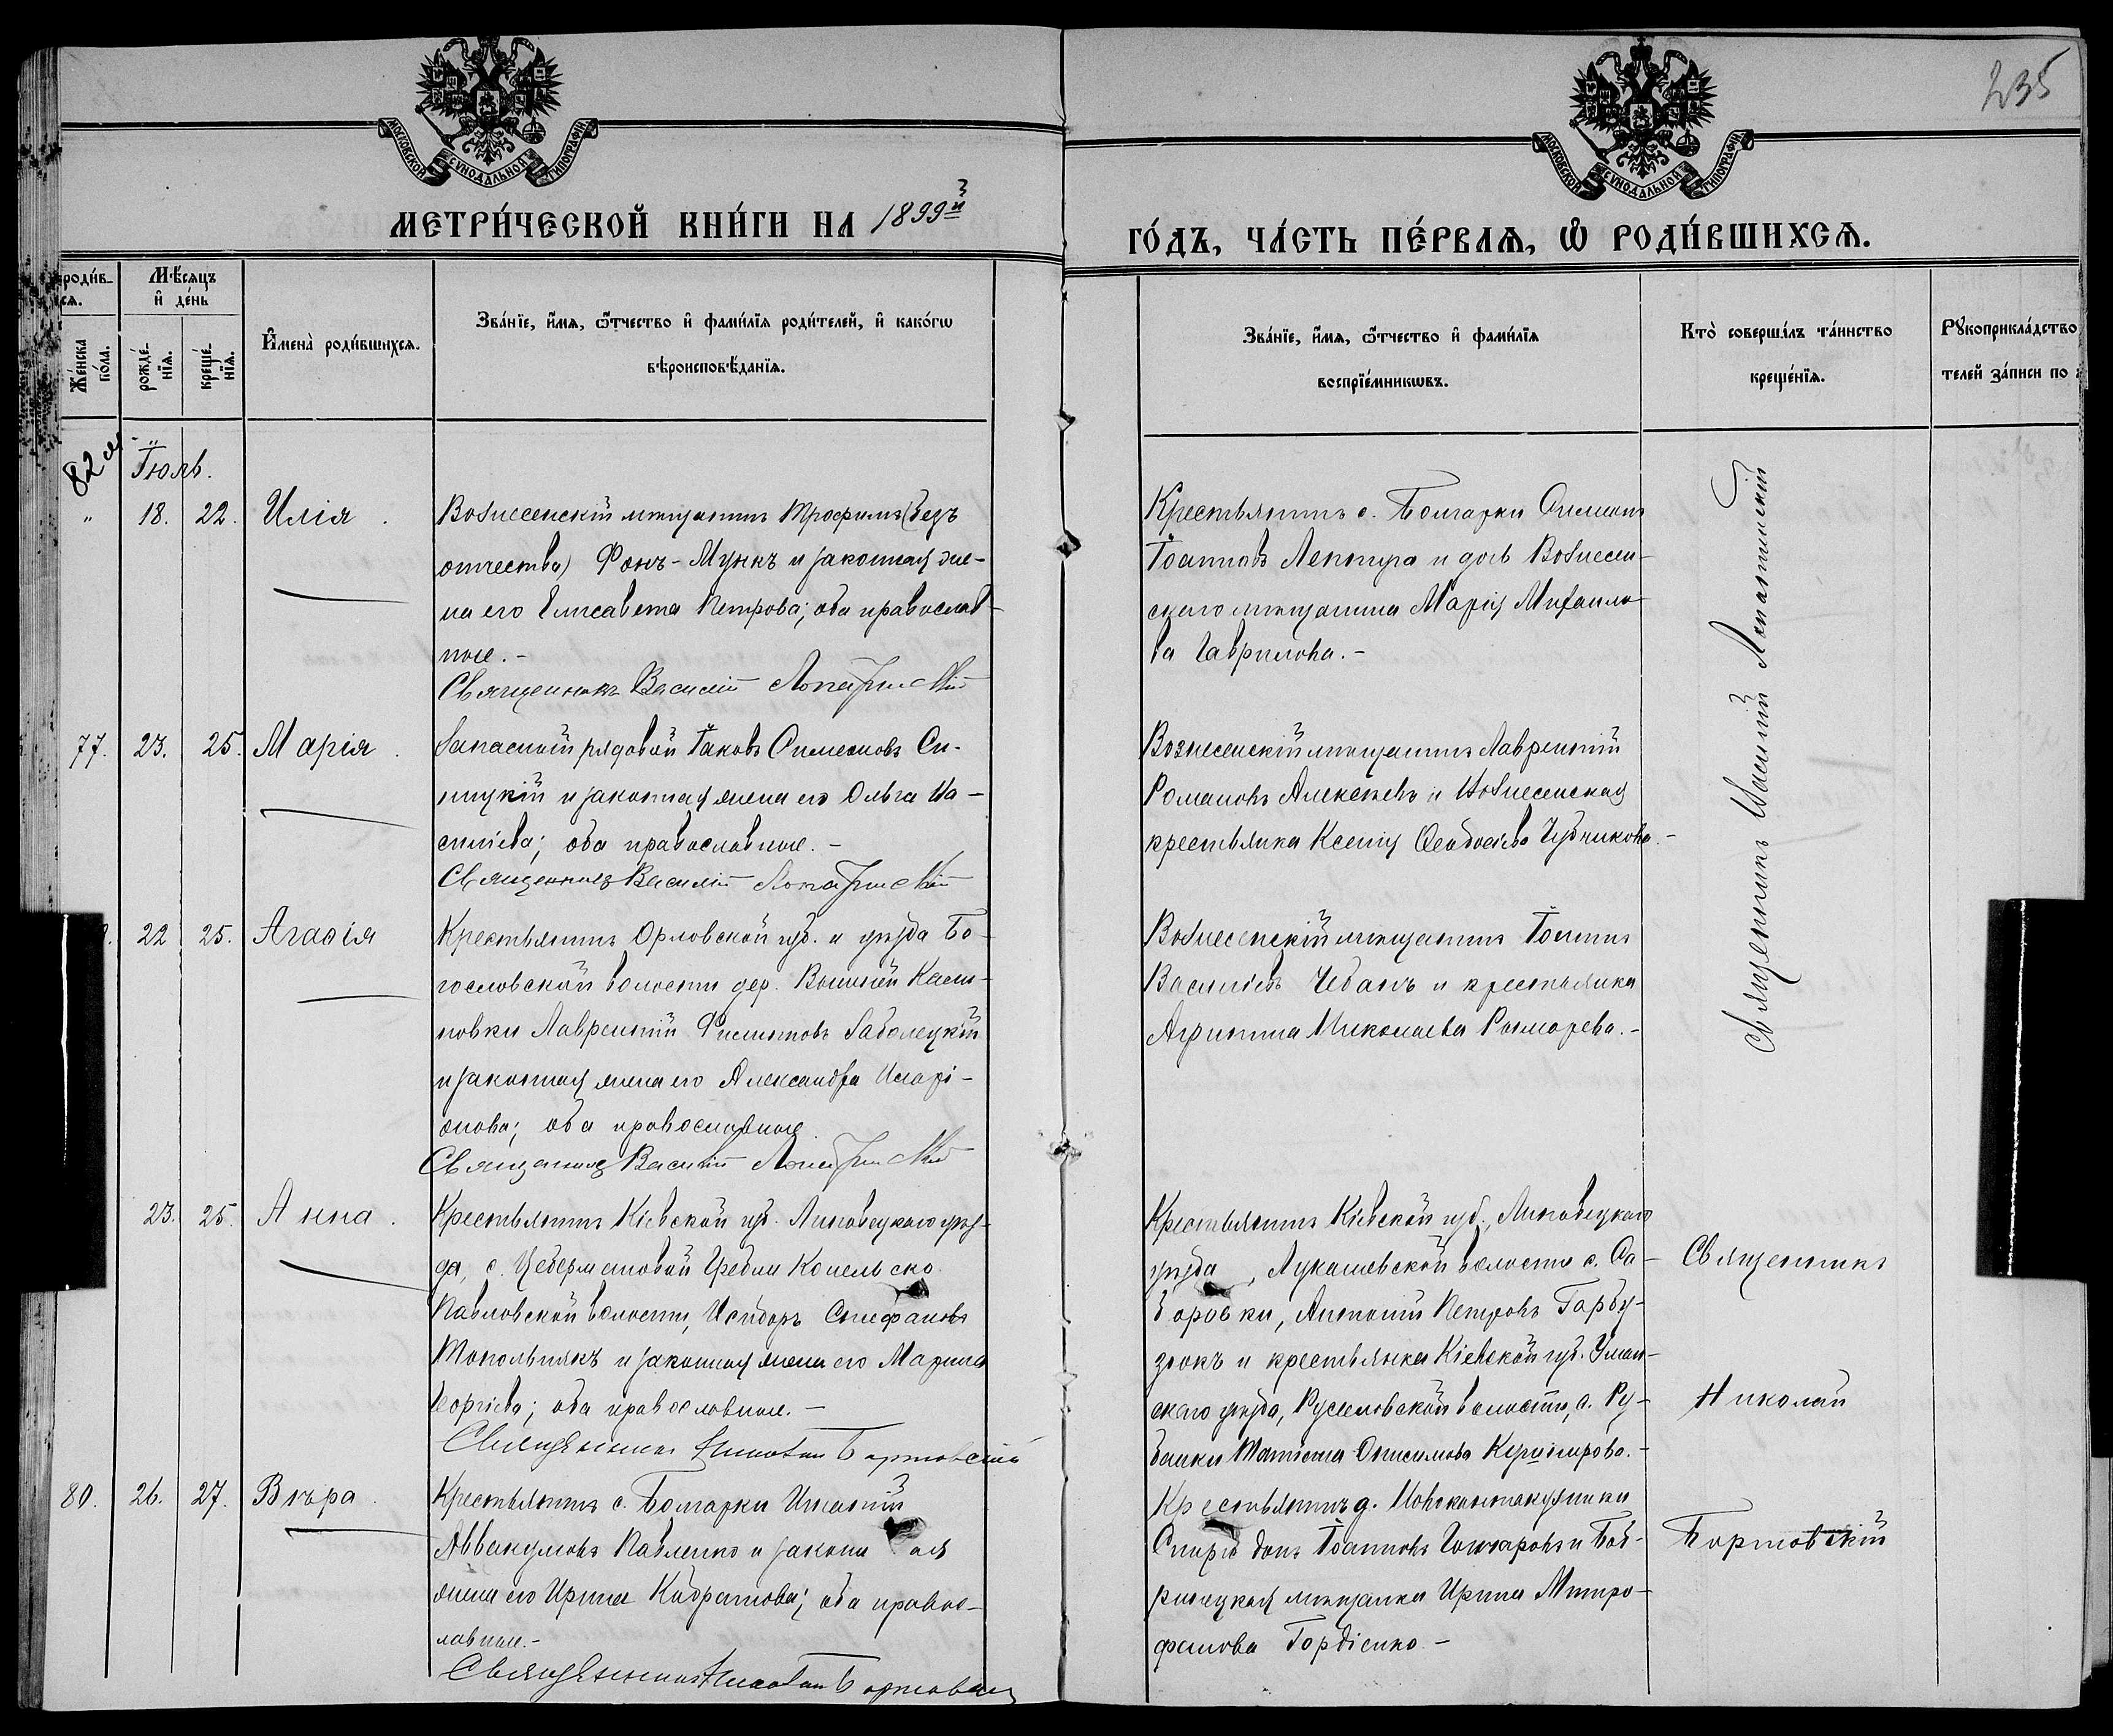 235
МОСКОВСКОЙ СУНОДАЛЬНОЙ ТИПОГРАФІИ
МОСКОВСКОЙ СУНОДАЛЬНОЙ ТИПОГРАФІИ
МЕТРИ́ЧЕСКОЙ КНИ́ГИ НА 1899й
ГО́ДЪ, ЧА́СТЬ ПЕ́РВАѦ, Ѡ РОДИ́ВШИХСѦ.
роди́в-
сѧ.
Же́нска по́ла.
Мѣ́сѧцъ
и де́нь
рожде́-
нїѧ.
креще́-
нїѧ.
Имена̀ роди́вшихсѧ.
Зва́нїе, и́мѧ, ѻ҆́тчество и фами́лїѧ роди́телей, и како́гѡ
вѣроисповѣ́данїѧ.
Зва́нїе, и́мѧ, ѻ҆́тчество и фами́лїѧ
воспрїе́мникѡвъ.
Кто̀ соверша́лъ та́инство
креще́нїѧ.
Рꙋкоприкла́дство
телей за́писи по
82
Іюль.
" 18. 22. Илія.
Вознесенскій мѣщанинъ Трофимъ (безъ
отчества) Фонъ-Мункъ и законная же-
на его Елисавета Петрова; оба православ-
ные.-
Священникъ Василій
Крестьянинъ с. Болгарки Симеонъ
Іоанновъ и дочь Вознесен-
скаго мѣщанина Марія Михаило-
ва Гаврилова.-
Священникъ Василій
77. 23. 25. Марія.
Запасный рядовой Іаковъ Симеоновъ Си-
ницкій и законная жена его Ольга Ва-
силіева; оба православные.-
Священникъ Василій
Вознесенскій мѣщанинъ Лаврентій
Романовъ Алексѣевъ и Вознесенская
крестьянка Ксенія Ѳеодосіева
22 25. Агаѳія
Крестьянинъ Орловской губ. и уѣзда Бо-
гословской волости дер. Вышней Кали-
новки Лаврентій Филиповъ Заболецкій
и законная жена его Александра Иларі-
онова; оба православные.
Священникъ Василій
Вознесенскій мѣщанинъ Іоаннъ
Василіевъ Чебанъ и крестьянка
Агрипина Николаева Рымарева.-
23. 25. Анна.
Крестьянинъ Кіевской губ. Липовецкаго уѣз-
да, с. Цебермановой Гребли Конельско-
Павловской волости, Исидоръ Стефановъ
Топольнякъ и законная жена его Марина
Георгіева; оба православные.-
Священникъ Николай Бортовскій
Крестьянинъ Кіевской губ., Липовецкаго
уѣзда, Лукашевской волости с. Са-
баровки, Антоній Петровъ Гарбу-
зюкъ и крестьянка Кіевской губ. Уман-
скаго уѣзда, Русаловской волости, с. Ру-
банки Татіана Онисимова
Священникъ
Николай
Бортовскій
80. 26. 27. Вѣра.
Крестьянинъ с. Болгарки Игнатій
Аввакумовъ Павленко и законная
жена его Ирина Кодратова; оба правос-
лавные.-
Священникъ Николай Бортовскій
Крестьянинъ д. Новокантакузинки
Спиридонъ Іоанновъ Гончаровъ и Боб-
ринецкая мѣщанка Ирина Митро-
фанова Гордіенко.-